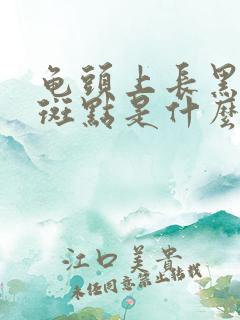 龟頭上長黑
斑點是什麼
江口美貴
未任同意禁止转载